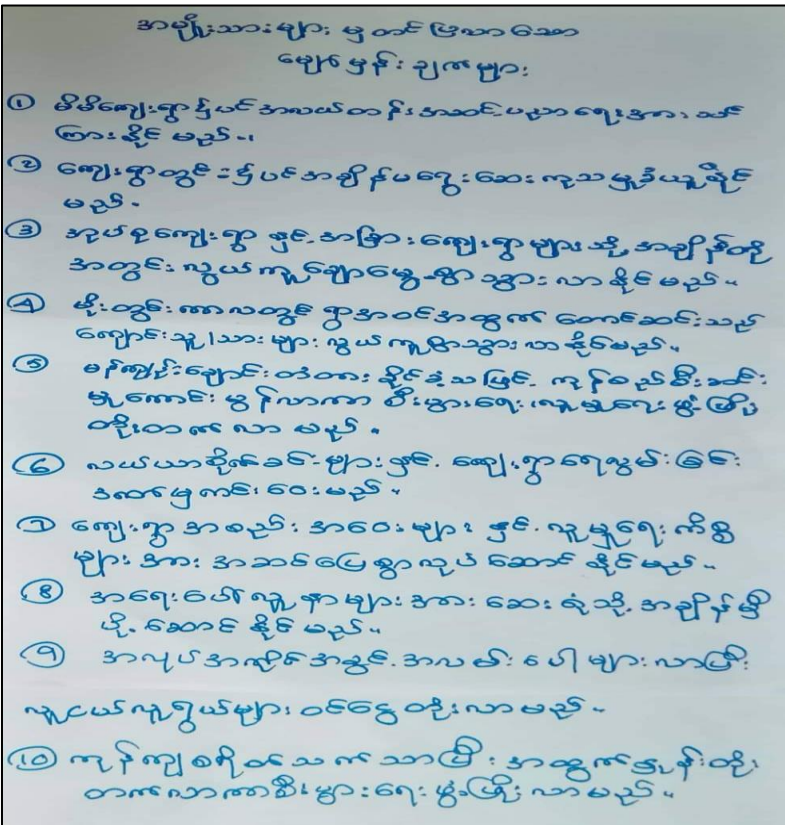 အမျိုးသားများ မှ တင်ပြလာသော
မျှော်မှန်းချက်များ
① မိမိကျေးရွာ၌ပင်အလယ်တန်းအဆင့်ပညာရေးအား သင်
ကြားနိုင်မည်။
② ကျေးရွာတွင်း၌ပင်အချိန်မရွေးဆေးကုသမှုခံယူနိုင်
မည်။
③ အုပ်စုကျေးရွာ နှင့် အခြားကျေးရွာများသို့ အချိန်တို
အတွင်း လွယ်ကူချောမွေ့စွာ သွားလာနိုင်မည်။
④ မိုးတွင်းကာလတွင် ရွာအဝင်အထွက် တောင်ဆင်းသည်
ကျောင်းသူ/သားများ လွယ်ကူစွာသွားလာနိုင်မည်။
⑤ မန်ကျည်းချောင်းတံတား ခိုင်ခံ့သဖြင့် ကုန်စည်စီးဆင်း
မှုကောင်းမွန်လာကာ စီးပွားရေး၊ လူမှုရေး ဖွံ့ဖြိုး
တိုးတက်လာမည်။
⑥ လယ်ယာစိုက်ခင်းများနှင့် ကျေးရွာရေလွှမ်းခြင်း
ဒဏ်မှကင်းဝေးမည်။
⑦ ကျေးရွာအစည်းအဝေးများ နှင့် လူမှုရေးကိစ္စ
များအား အဆင်ပြေစွာလုပ်ဆောင်နိုင်မည်။
⑧ အရေးပေါ်လူနာများအား ဆေးရုံသို့ အချိန်မှီ
ပို့ဆောင်နိုင်မည်။
⑨ အလုပ်အကိုင်အခွင့်အလမ်းပေါများလာပြီး
လူငယ်လူရွယ်များ ဝင်ငွေတိုးလာမည်။
⑩ ကုန်ကျစရိတ်သက်သာပြီး အထွက်နှုန်းတိုး
တက်လာကာစီးပွားရေးဖွံ့ဖြိုးလာမည်။